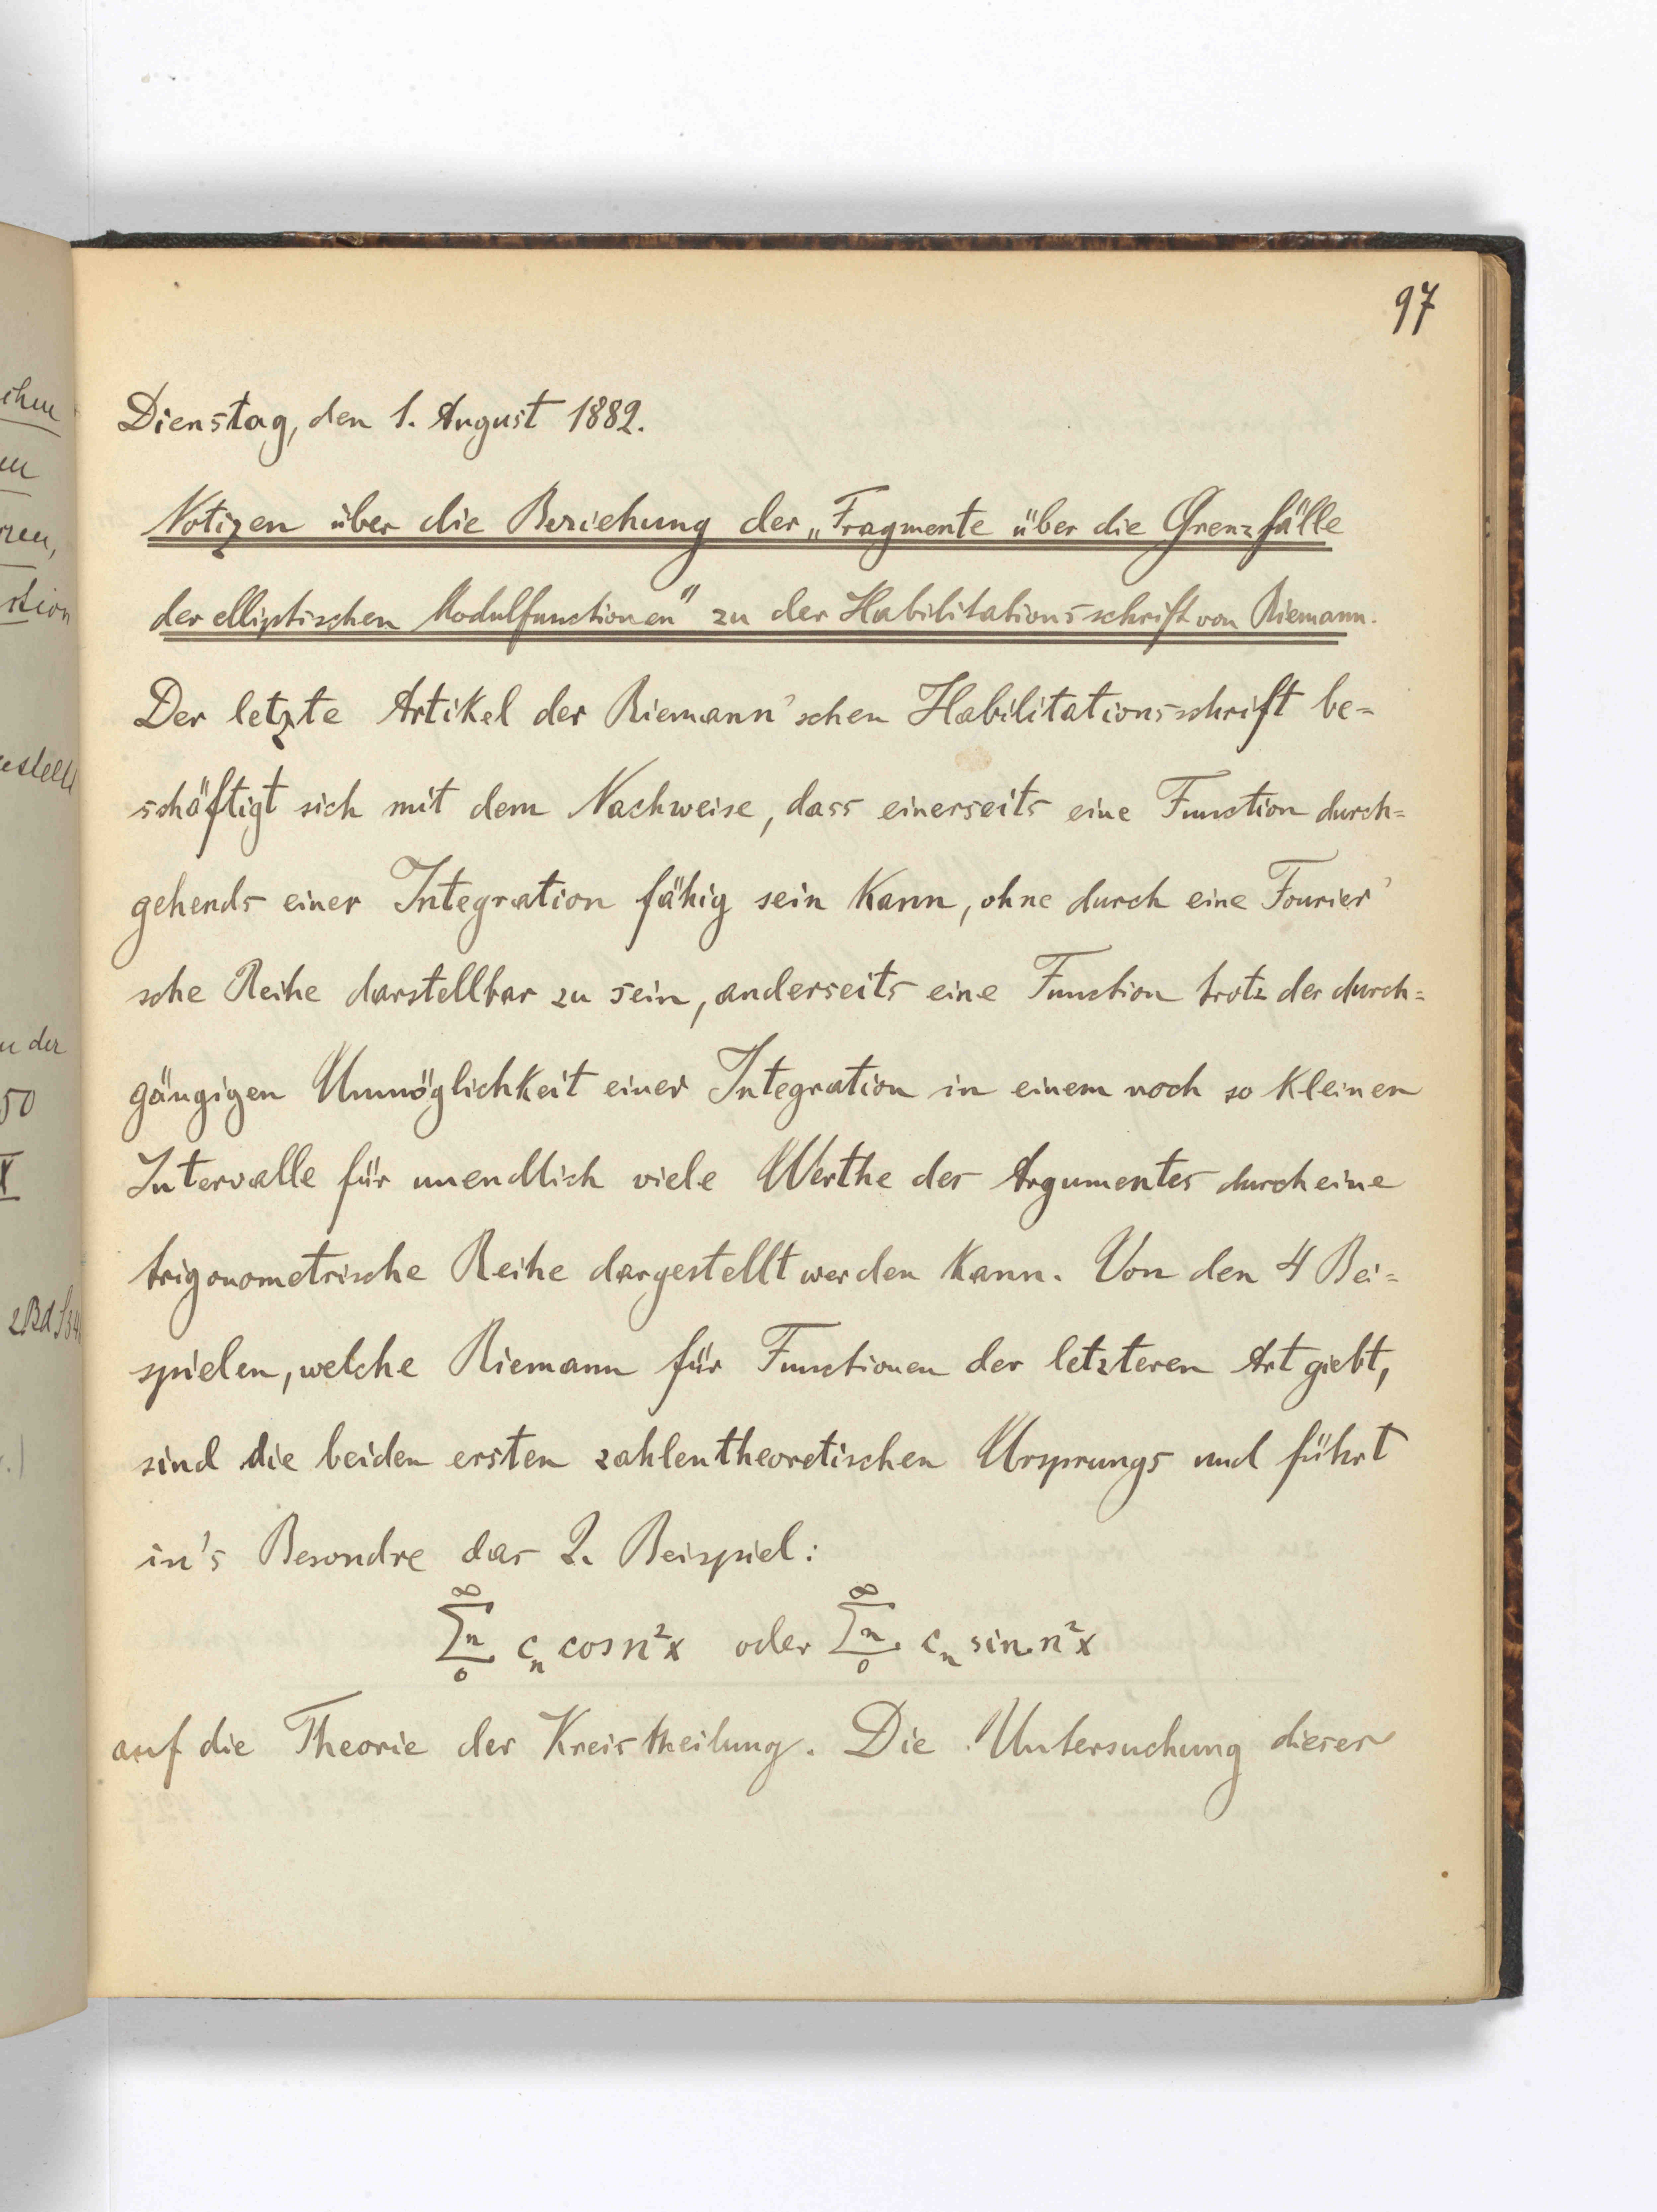 97
Dienstag, den 1. August 1882.
Notizen über die Beziehung der „Fragmente über die Grenzfälle
der elliptischen Modulfunctionen" zu der Habilitationsschrift von Riemann.
Der letzte Artikel der Riemann'schen Habilitationsschrift be=
schäftigt sich mit dem Nachweise, dass einerseits eine Function durch=
gehends einer Integration fähig sein kann, ohne durch eine Fourier'
sche Reihe darstellbar zu sein, anderseits eine Function trotz der durch=
gängigen Unmöglichkeit einer Integration in einem noch so kleinen
Intervalle für unendlich viele Werthe des Argumentes durch eine
trigonometrische Reihe dargestellt werden kann. Von den 4 Bei=
spielen, welche Riemann für Functionen der letzteren Art giebt,
sind die beiden ersten zahlentheoretischen Ursprungs und führt
in's Besondre das 2. Beispiel:
∞ ∞
∑n cₙ cos n²x oder ∑n cₙ sin n²x
0 0
auf die Theorie der Kreistheilung. Die Untersuchung dieser
u der
50
X
2Bd